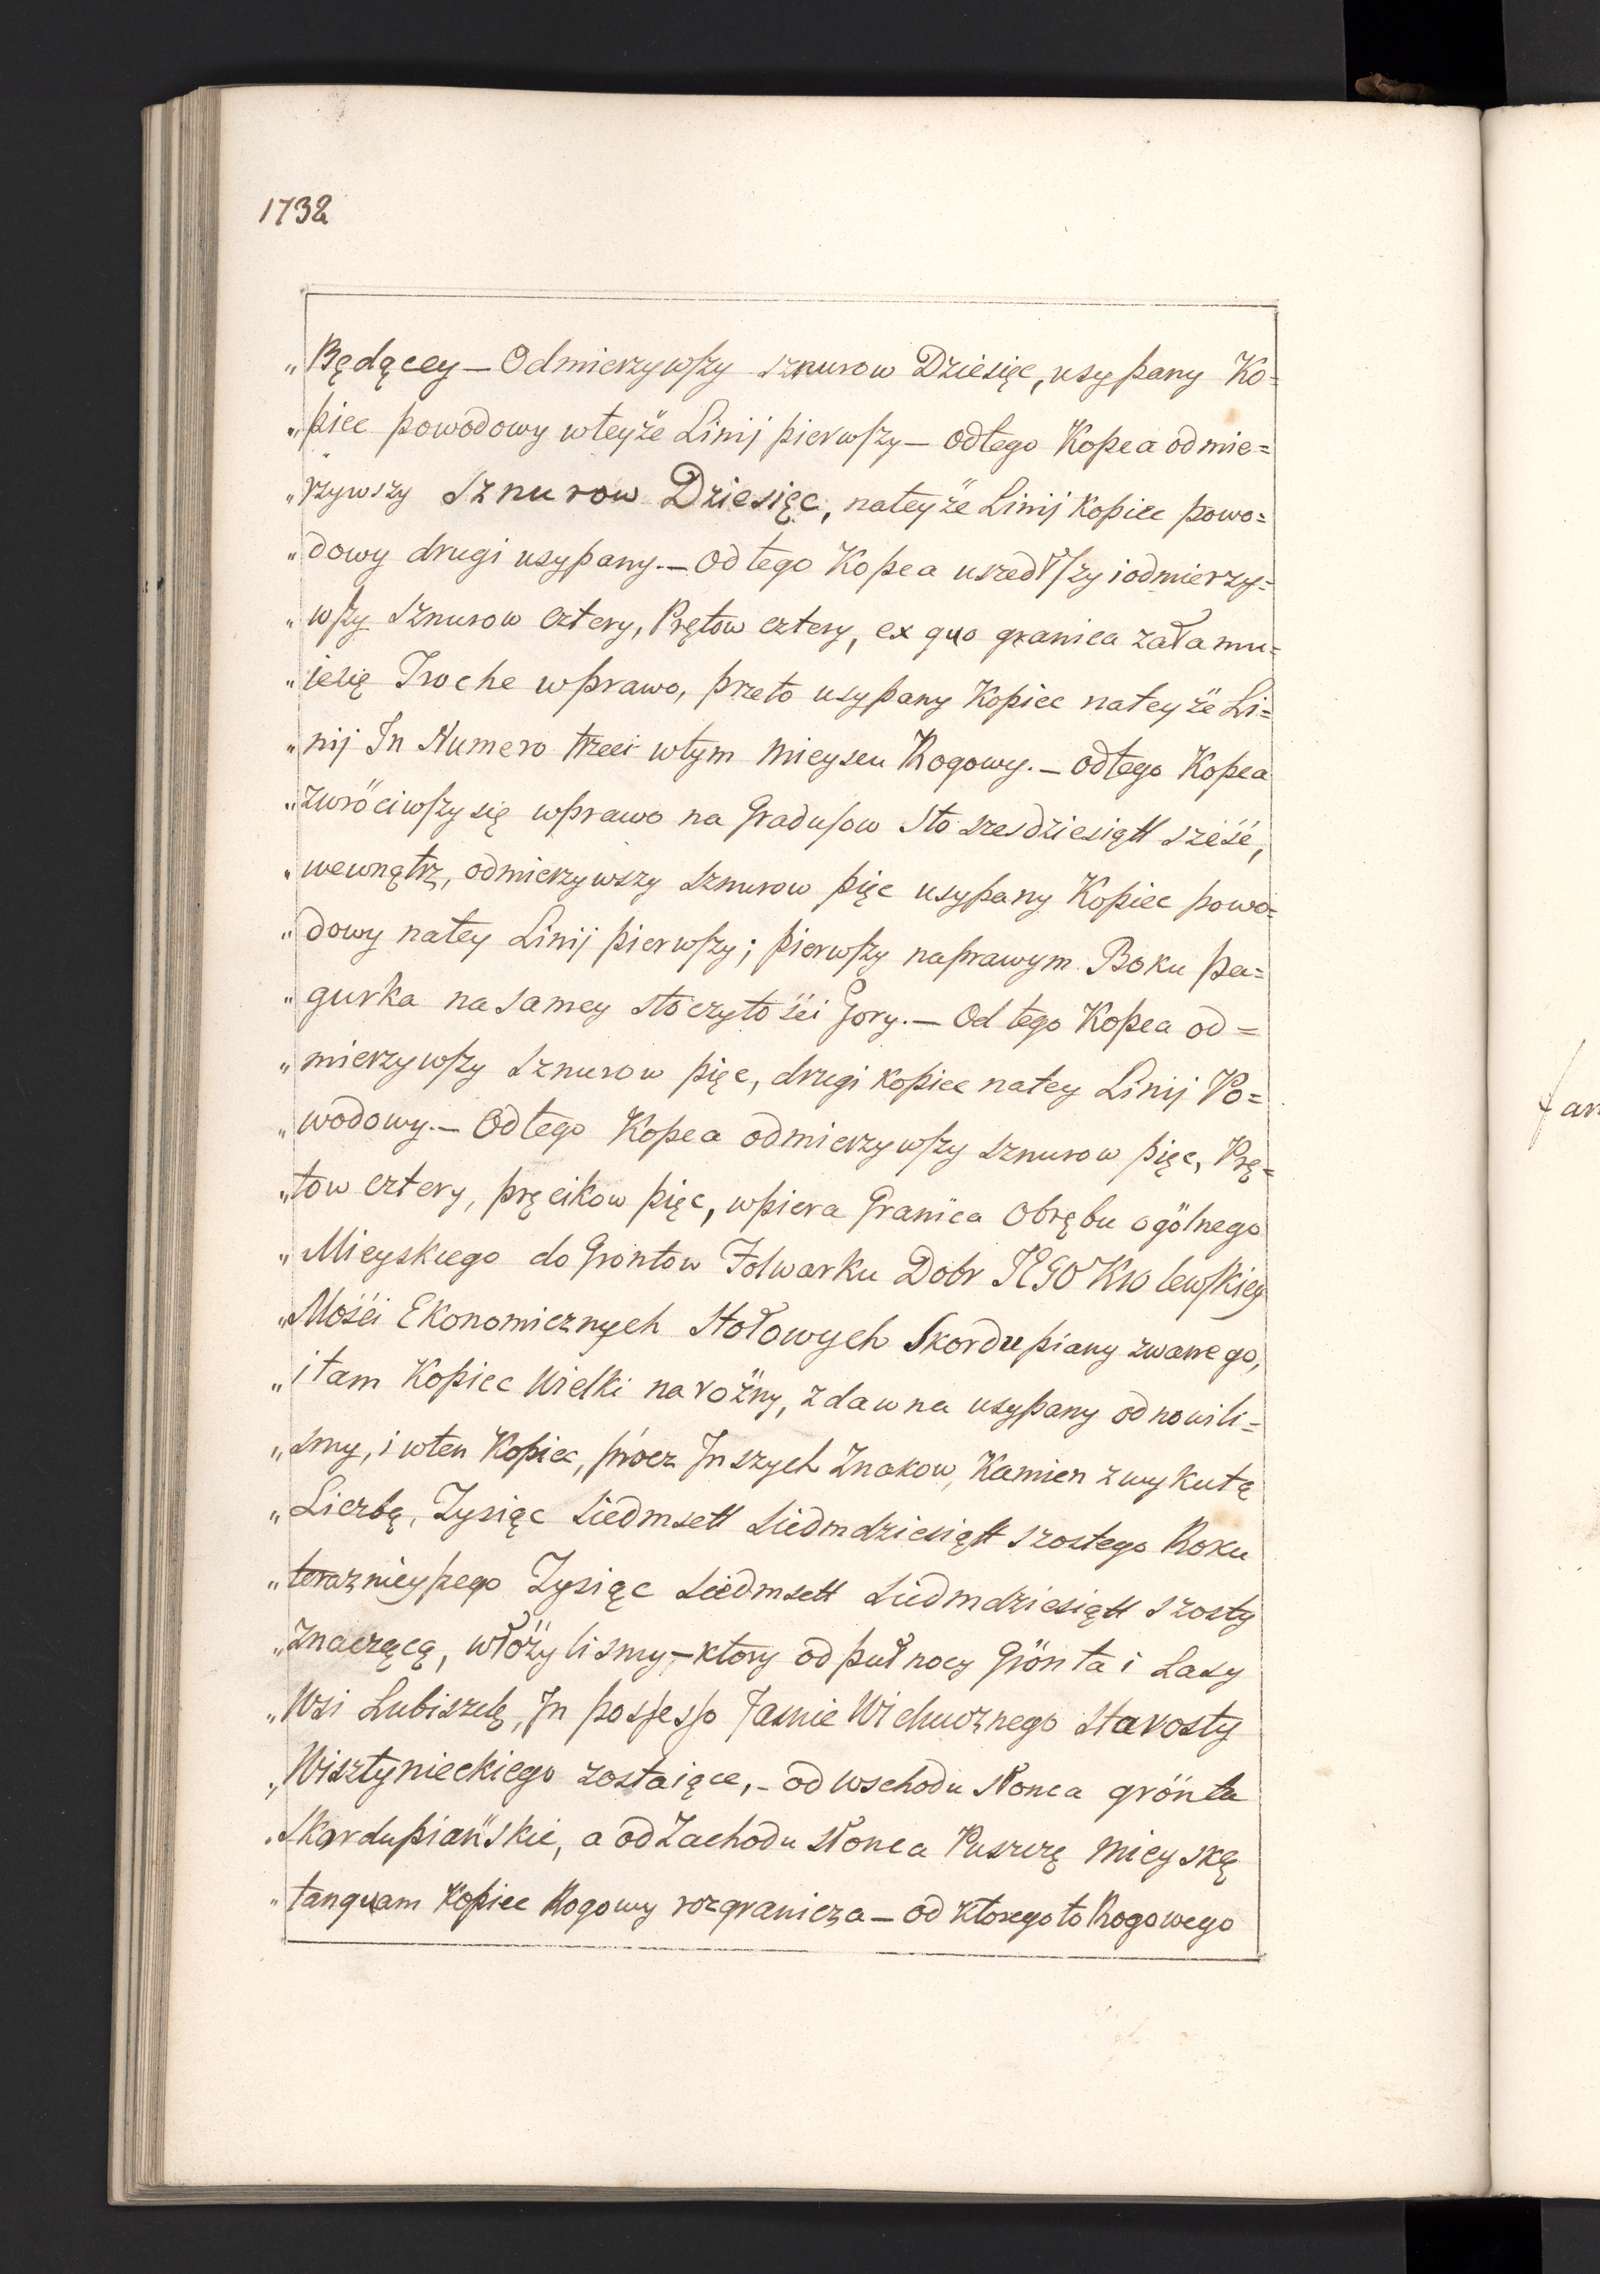 1732
„Będącey — Odmierzywszy sznurow Dziesięc, usypany Ko=
„piec powodowy wteyże Linij pierwszy — odtego Kopca odmie=
„rzywszy Sznurow Dziesięc, nateyże Linij Kopiec powo=
„dowy drugi usypany. — Od tego Kopca uszedłszy i odmierzy=
„wszy Sznurow cztery, Prętow cztery, ex quo granica załamu=
„iesię Troche wprawo, przeto usypany Kopiec nateyże Li=
„nij In Numero trzeci wtym Mieyscu Rogowy. — odtego Kopca
„zwróciwszy się wprawo na Gradusow Sto szesdziesiątt sześć,
„wewnątrz, odmierzywszy sznurow pięc usypany Kopiec powo=
„dowy natey Linij pierwszy; pierwszy naprawym Boku pa=
„gurka na samey stoczytości Gory. — Od tego Kopca od=
„mierzywszy Sznurow pięc, drugi kopiec natey Linij Po=
„wodowy. — Odtego Kopca odmierzywszy sznurow pięc, Prę=
„tow cztery, pręcikow pięc, wpiera Granica Obrębu ogólnego
„Mieyskiego do Grontow Folwarku Dobr JEGO Krolewskiey
„Mości Ekonomicznych Stołowych Skordupiany zwanego,
„i tam Kopiec Wielki narożny, zdawna usypany odnowili=
„smy, i wten Kopiec, prócz Inszych Znakow, Kamien zwykutą
„Liczbą, Tysiąc Siedmsett Siedmdziesiątt szostego Roku
„teraznieyszego Tysiąc Siedmsett Siedmdziesiątt szosty
„znaczącą, włożylismy — ktory od pułnocy Grónta i Lasy
„Wsi Lubiszek, In possesso Jasnie Wielmoznego Starosty
„Wisztynieckiego zostaiące, — od wschodu słonca grónta
„Skardupiańskie, a od Zachodu słonca Puszczę Mieyską
„tanquam Kopiec Rogowy rozgranicza — od ktorego to Rogowego